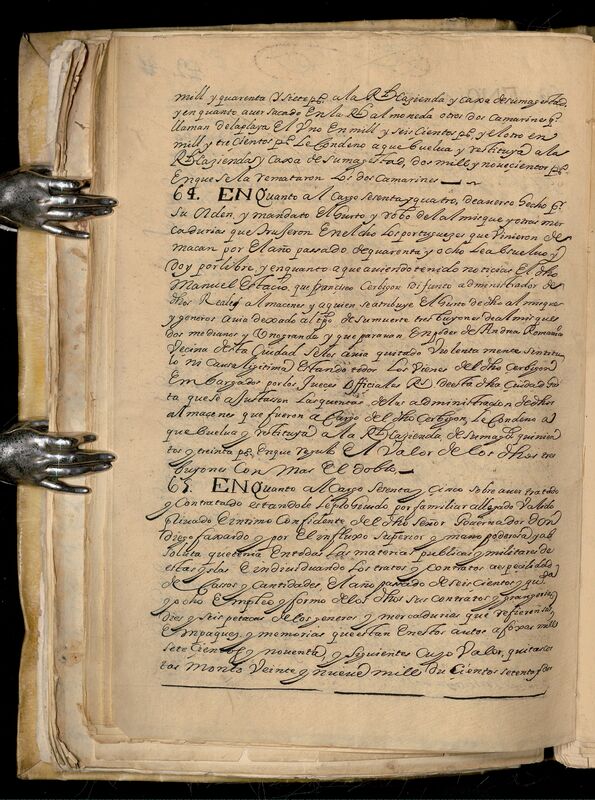 mill y quarenta y siete ps. a la Rl. Hazienda y caxa de su magestad
y en quanto aver sacado En la Rl. almoneda otros dos Camarines q.
llaman de la playa El Uno En mill y seis Cientos ps. y el otro en
mill y tre Cientos ps. Le Condeno a que buelua y restituya a la
Rl. Hazienda y Caxa de su magestad, dos mill y novecientos ps.
En que se la remataron Los dos Camarines
64. EN Quanto al Cargo sesenta y quatro, de auerse hecho pr.
Su Orden, y mandato El hurto y robo del almisque y otras mer
cadurias que trujeron En el cho Los portuguezes que Vinieron de
macan por El año passado de quarenta y ocho Le absueluo y
doy por libre, y en quanto a que auiendo tenido noticias El dho
Manuel Estacio, que francisco Corbizon difunto administrador de
dhos Reales almacenes y a quien se atribuye El hurto de dho almisque
y generos auia dexado al tpo. de su muerte tres buyones de almisque
dos medianos y Uno grande y que parauan En poder de Andrea Romana
Vecina desta Ciudad se los auia quitado Violenta mente sin titu
lo ni Causa legitima Estando todos Los Vienes del dho Corbizon
Em bargados por los Jueces Officiales Rs. de esta dha Ciudad has
ta que se ajustassen Las quentas de la administracion de dhos
almacenes que fueron a Cargo del dho Corbizon, Le Condeno a
que buelua y restituya a la Rl. Hazienda, de su magd. quinien
tos y treinta ps. En que regulo El Valor de Los dhos tres
buyones Con mas El doblo,
65. EN Quanto al Cargo Sesenta y Cinco sobre auer tratado
y Contratado estandole prohiuido por familiar allegado Valido
priuado E intimo Confidente del dho Señor Gouernador Don
diego faxardo y por El influxo Superior y mano poderosa y ab
soluta que tenia En todas Las materias publicas y militares de
estas yslas E indiuiduando Los tratos y Contratos a especialidad
de Cassos y Cantidades, El año passado de seis Cientos y quarenta
y ocho Empleo y formo de los dhos sus Contratos y grangerias,
diez y seis petacas de los generos y mercadurias que refieren los
Empaques, y memorias que estan En estos autos a foxas mill
sete Cientos y noventa y siguientes Cuyo Valor, quitas
tas Monto Veinte y nueue mill du Cientos setenta y seis